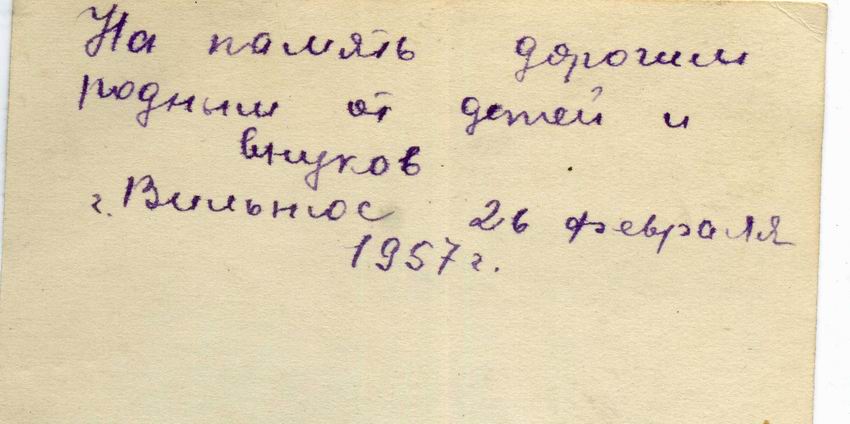 На память дорогим
родным от детей и
внуков
г. Вильнюс 26 февраля
1957 г.